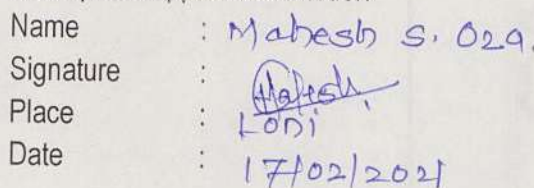 Name : Mahesh S. Oza.
Signature : Mahesh
Place : LONI
Date : 17/02/2021